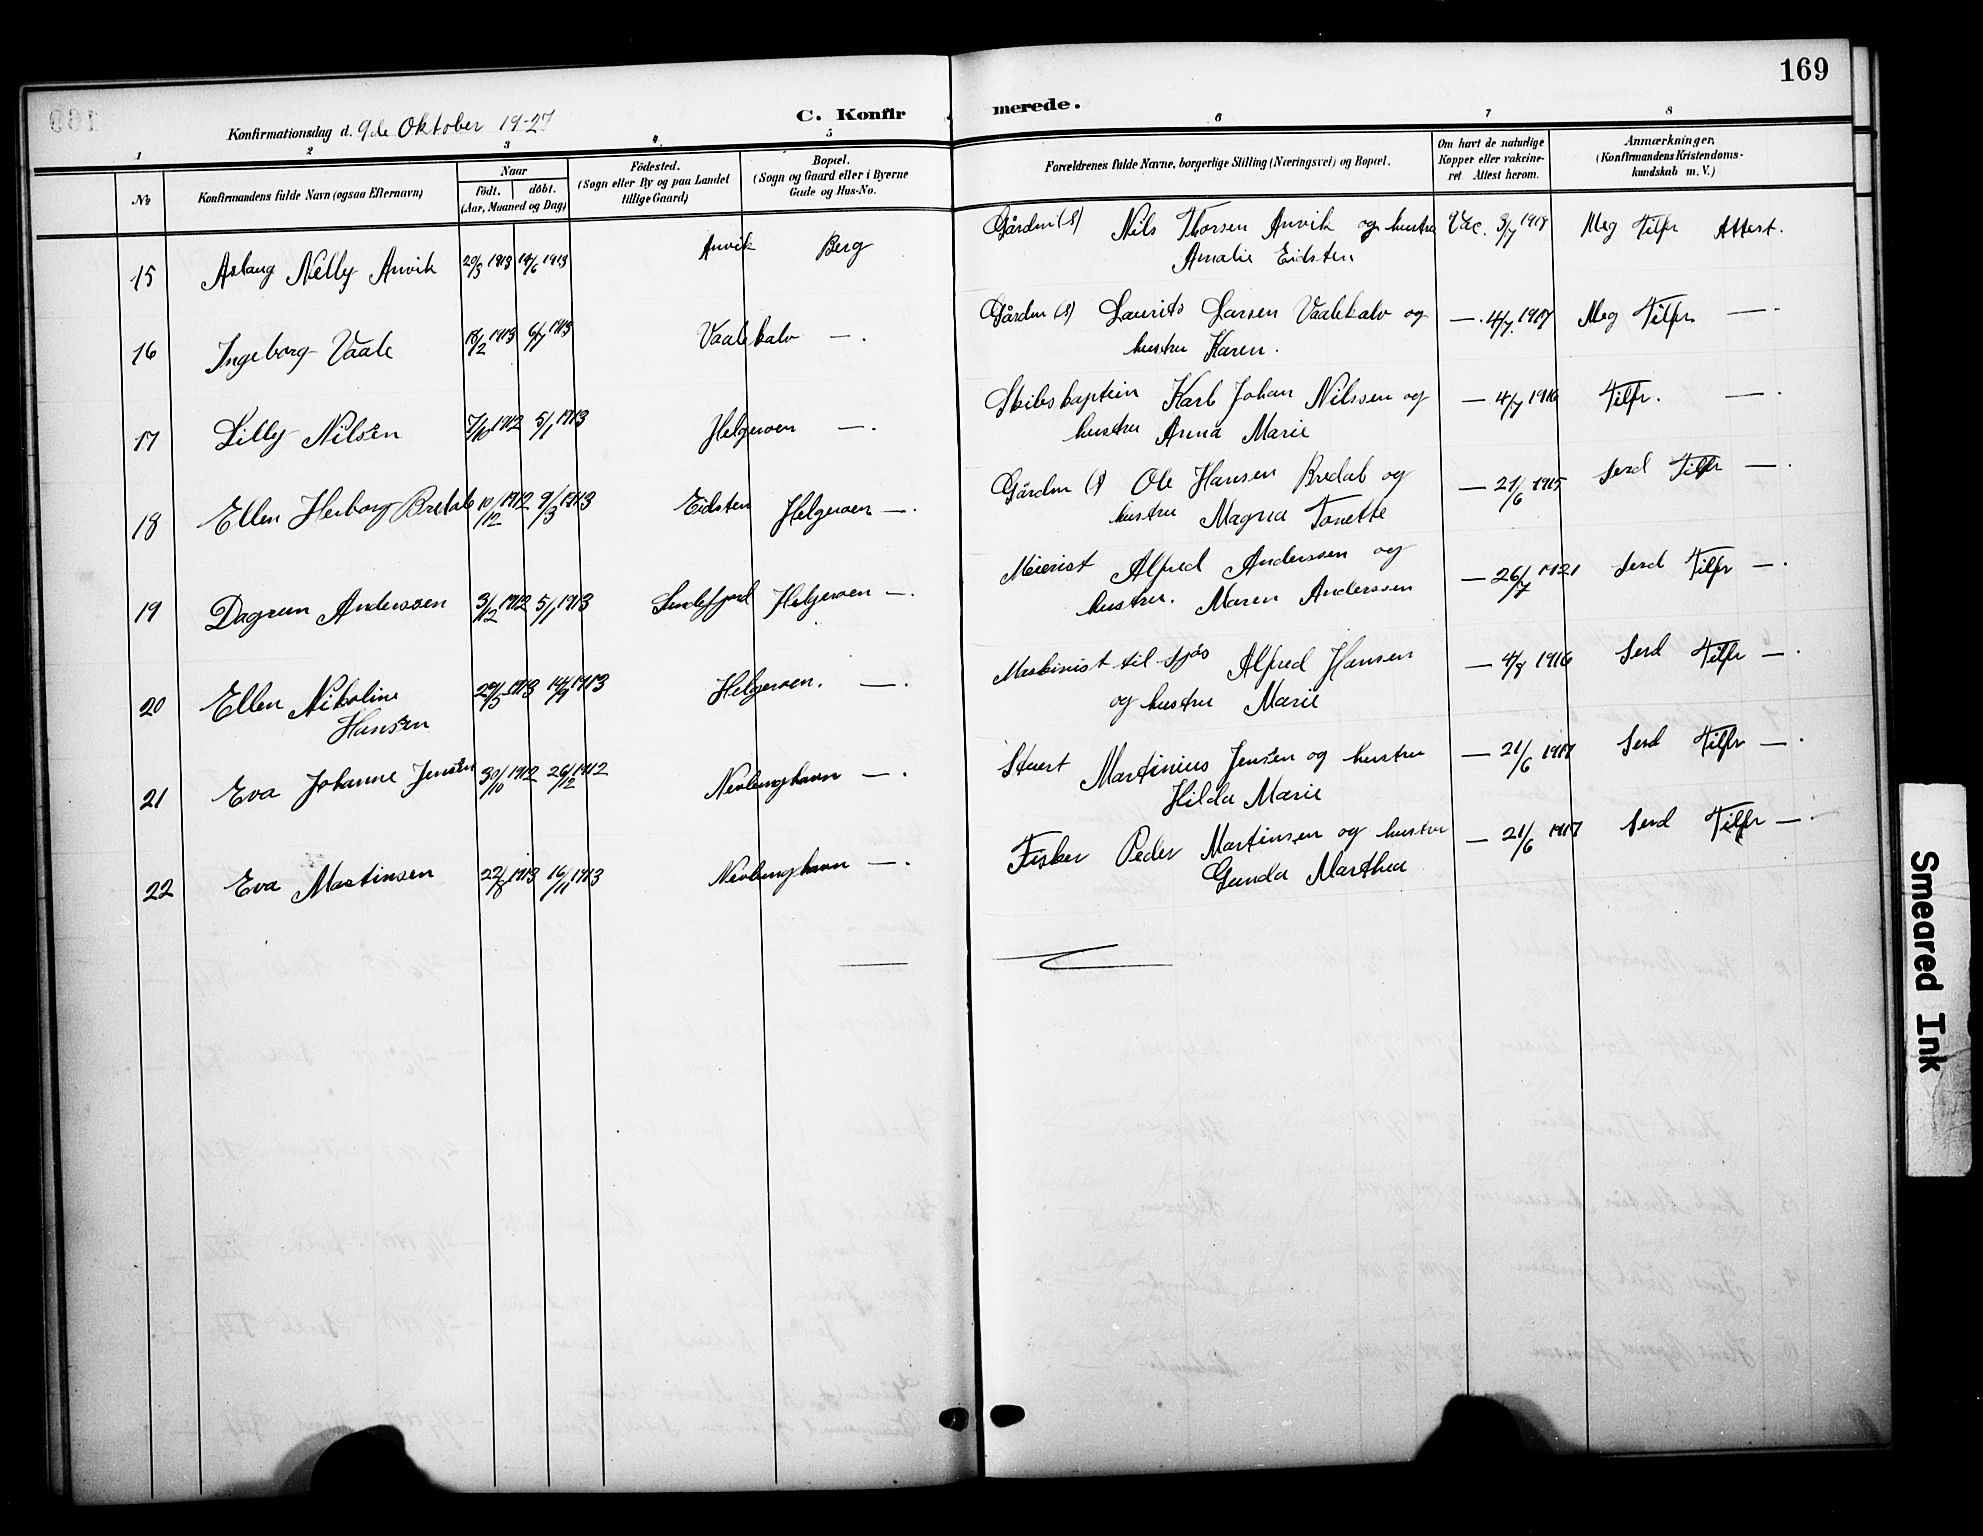 169
C. Konfirmerede.
Konfirmationsdag d. 9de Oktober 19-27
1 2 3 4 5 6 7 8
No
Konfirmandens fulde Navn (ogsaa Efternavn)
Naar
födt. döbt.
(Aar, Maaned og Dag)
Födested.
(Sogn eller By og paa Landet
tillige Gaard)
Bopæl.
(Sogn og Gaard eller i Byerne
Gade og Hus-No.
Forældrenes fulde Navne, borgerlige Stilling (Næringsvei) og Bopæl.
Om havt de naturlige
Kopper eller vakcine-
ret Attest herom.
Anmærkninger.
(Konfirmandens Kristendoms-
kundskab m. V.)
15 Aslaug Nelly Anvik 20/3 1913 14/6 1913 Anvik Berg Gården (s) Nils Thorsen Anvik og hustru Vac. 3/7 1917 Meg Tilfr Attest.
Amalie Eidsten
16 Ingeborg Vaale 18/2 1913 6/7 1913 Vaalekalv —. Gården (s) Laurits Larsen Vaalekalv og —. 4/7 1917 Meg Tilfr. —.
hustru Karen.
17 Lilly Nilsen 7/10 1912 5/1 1913 Helgeroen —. Skibskaptein Karl Johan Nilssen og — 4/7 1916 Tilfr. —.
hustru Anna Marie
18 Ellen Herborg Bredal 10/12 1912 9/3 1913 Eidsten Helgeroen —. Ole Hansen Bredal og — 21/6 1915 Serd Tilfr —.
hustru Magna Tonette
19 Dagrun Anderssen 3/12 1912 5/1 1913 Helgeroen —. Meierist Alfred Anderssen og — 26/7 1921 Serd Tilfr —.
hustru. Maren Anderssen
20 Ellen Nikoline 14/9 1913 Helgeroen. —. Maskinist til sjøs Alfred Hansen — 4/8 1916 Serd Tilfr —.
Hansen og hustru Marie
21 Eva Johanne Jensen 30/10 1912 26/12 1912 Nevlunghavn —. Stuert Martinius Jensen og hustru — 21/6 1917 Serd Tilfr —.
Hilda Marie
22 Eva Martinsen 22/8 1913 16/11 1913 Nevlunghavn —. Fisker Peder Martinsen og hustru — 21/6 1917 Serd Tilfr —.
Gunda Marthea
Smeared Ink